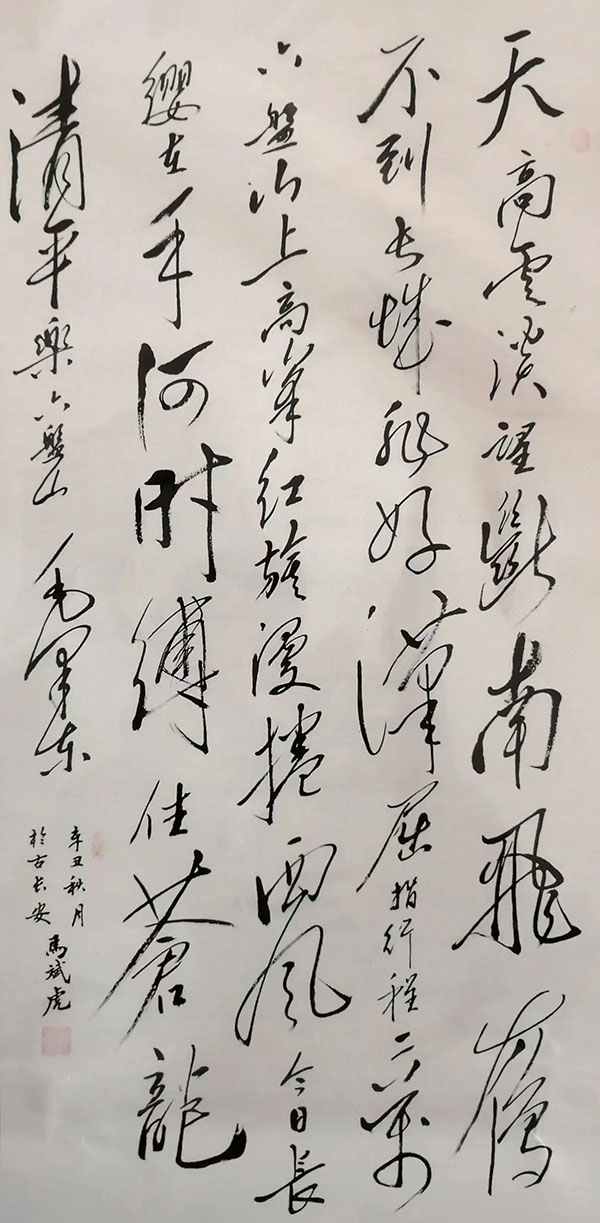 天高雲淡望斷南飛雁
不到长城非好漢屈指行程二萬
六盤山上高峯紅旗漫捲西風今日長
纓在手何時縛住蒼龍
清平樂六盤山 毛澤東
辛丑秋月
於古长安 馬斌虎